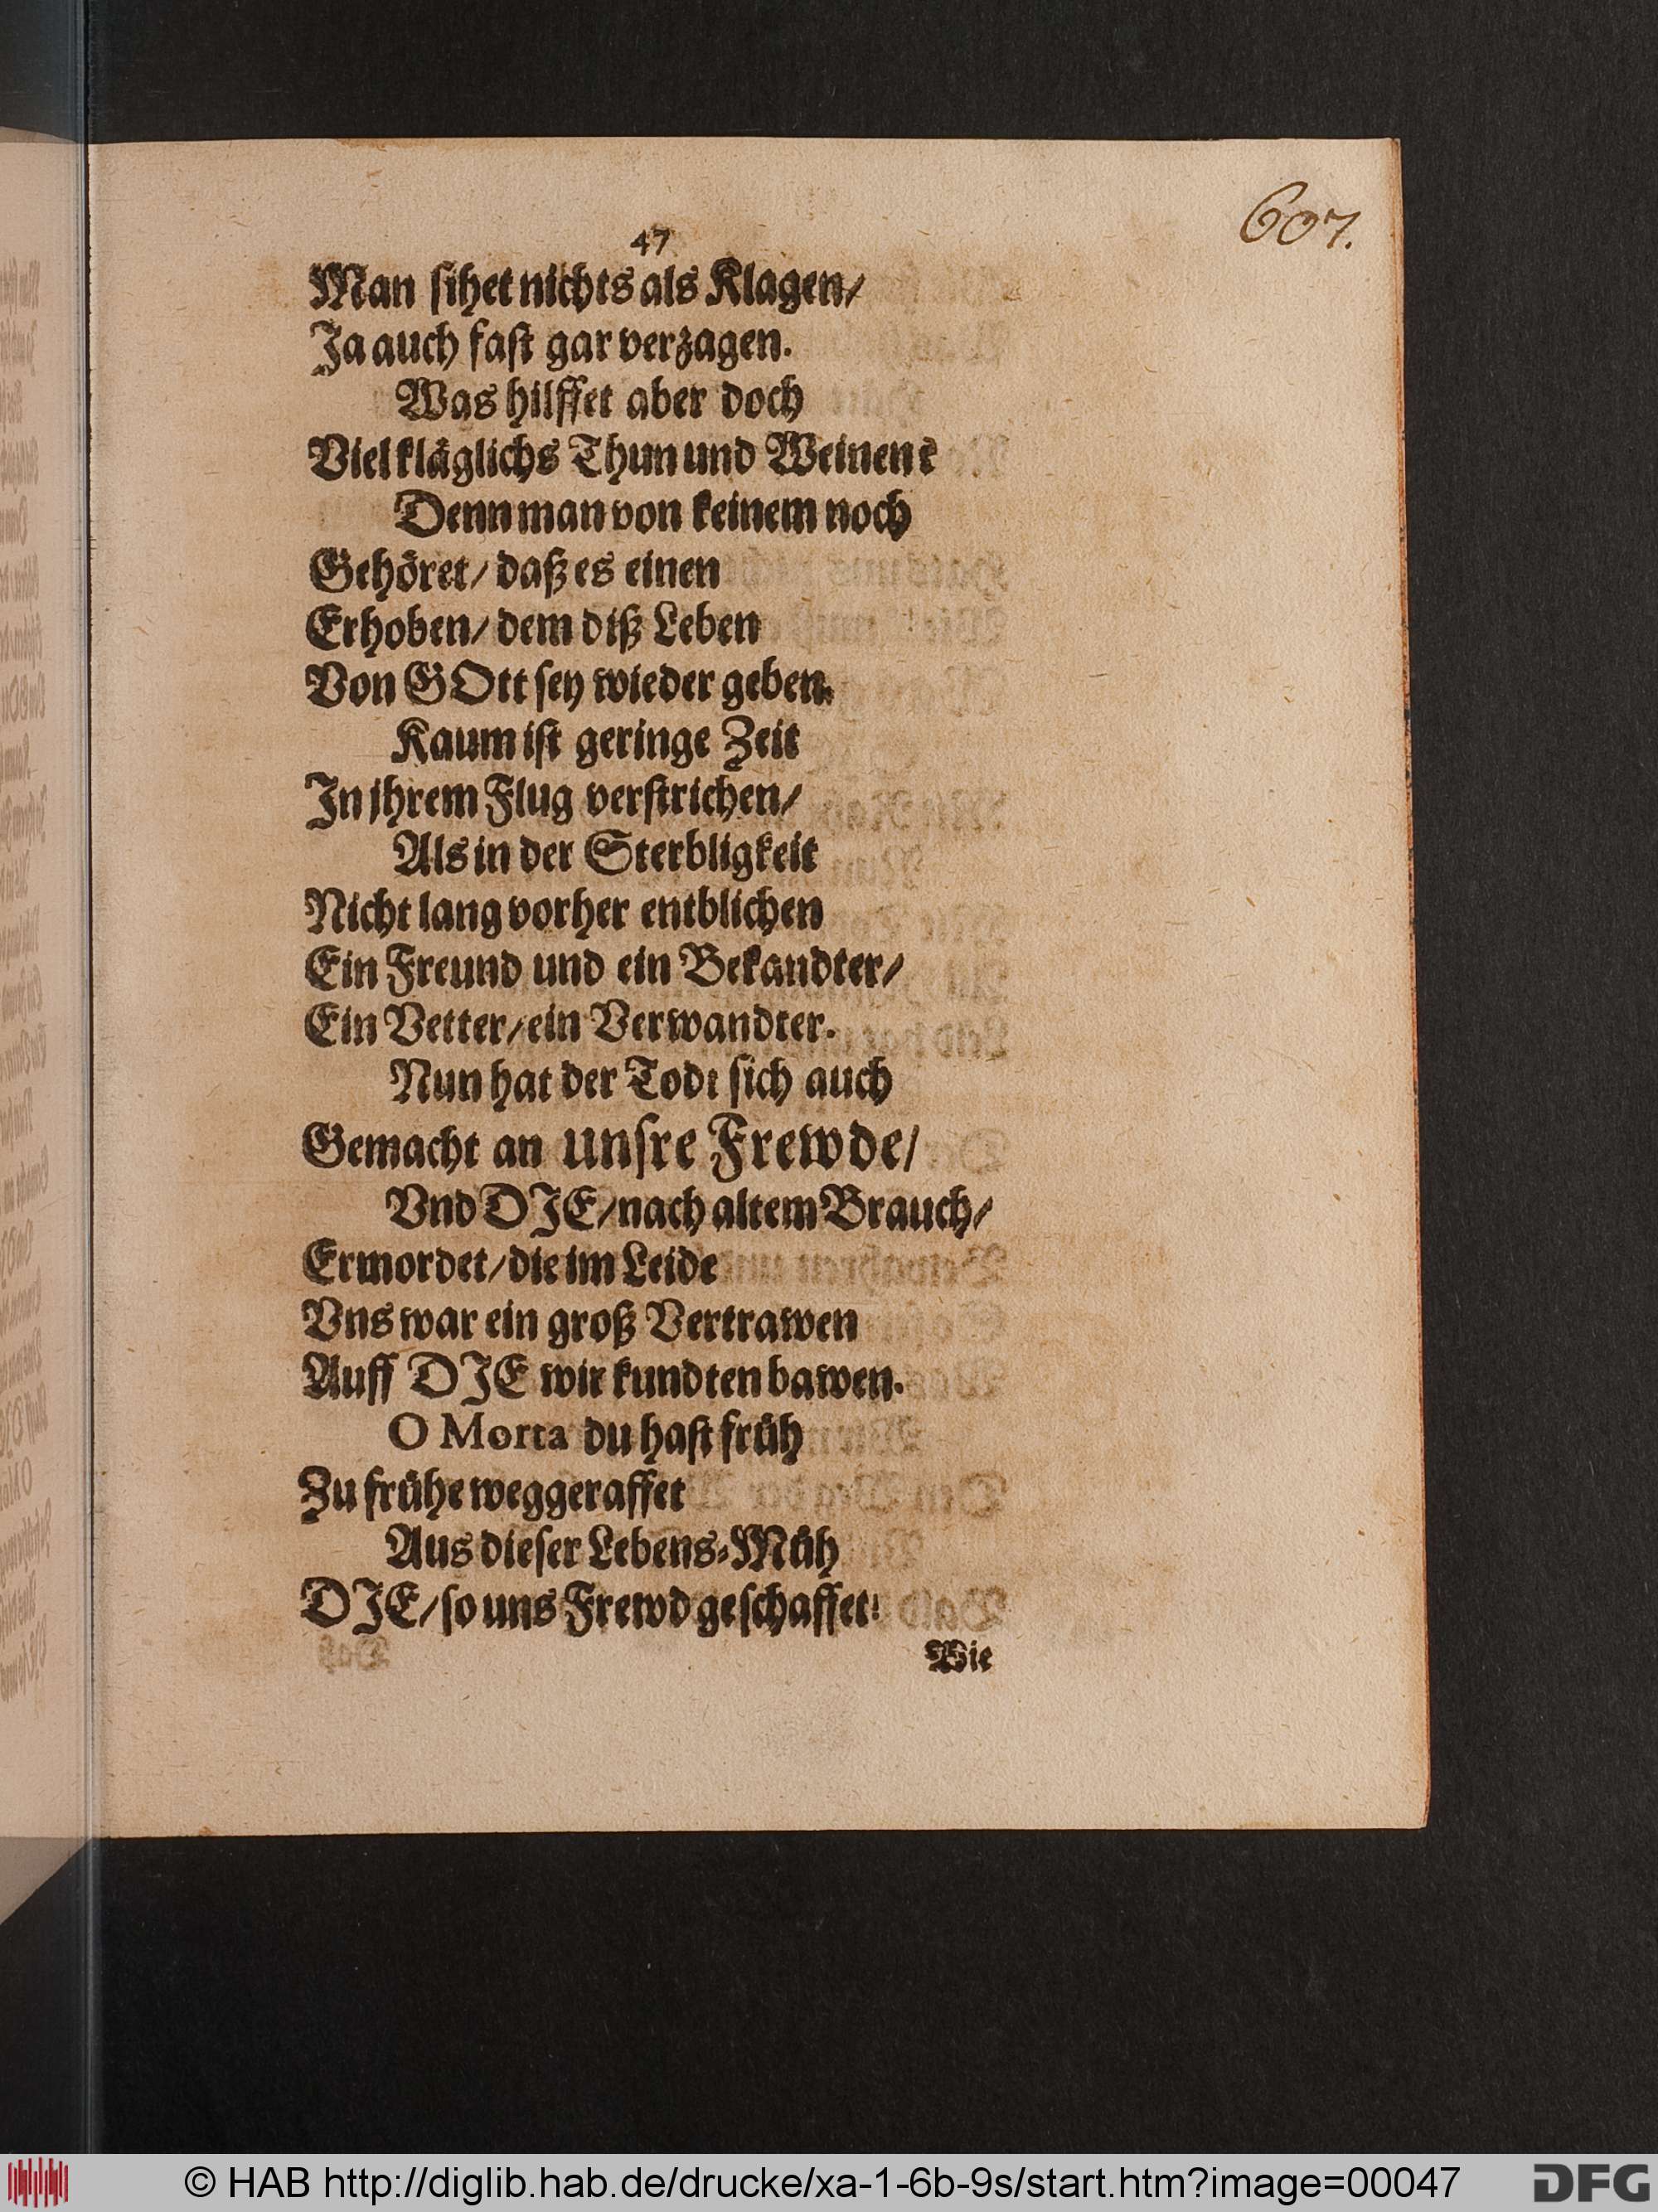 607.
47
Man sihet nichts als Klagen/
Ja auch fast gar verzagen.
Was hilffet aber doch
Viel kläglichs Thun und Weinen?
Denn man von keinem noch
Gehöret/ daß es einen
Erhoben/ dem diß Leben
Von GOtt sey wieder geben.
Kaum ist geringe Zeit
In jhrem Flug verstrichen/
Als in der Sterbligkeit
Nicht lang vorher entblichen
Ein Freund und ein Bekandter/
Ein Vetter/ ein Verwandter.
Nun hat der Todt sich auch
Gemacht an unsre Frewde/
Vnd DIE/ nach altem Brauch/
Ermordet/ die im Leide
Vns war ein groß Vertrawen
Auff DIE wir kundten bawen.
O Morta du hast früh
Zu frühe weggeraffet
Aus dieser Lebens-Müh
DIE/ so uns Frewd geschaffet!
Wie
© HAB http://diglib.hab.de/drucke/xa-1-6b-9s/start.htm?image=00047
DFG